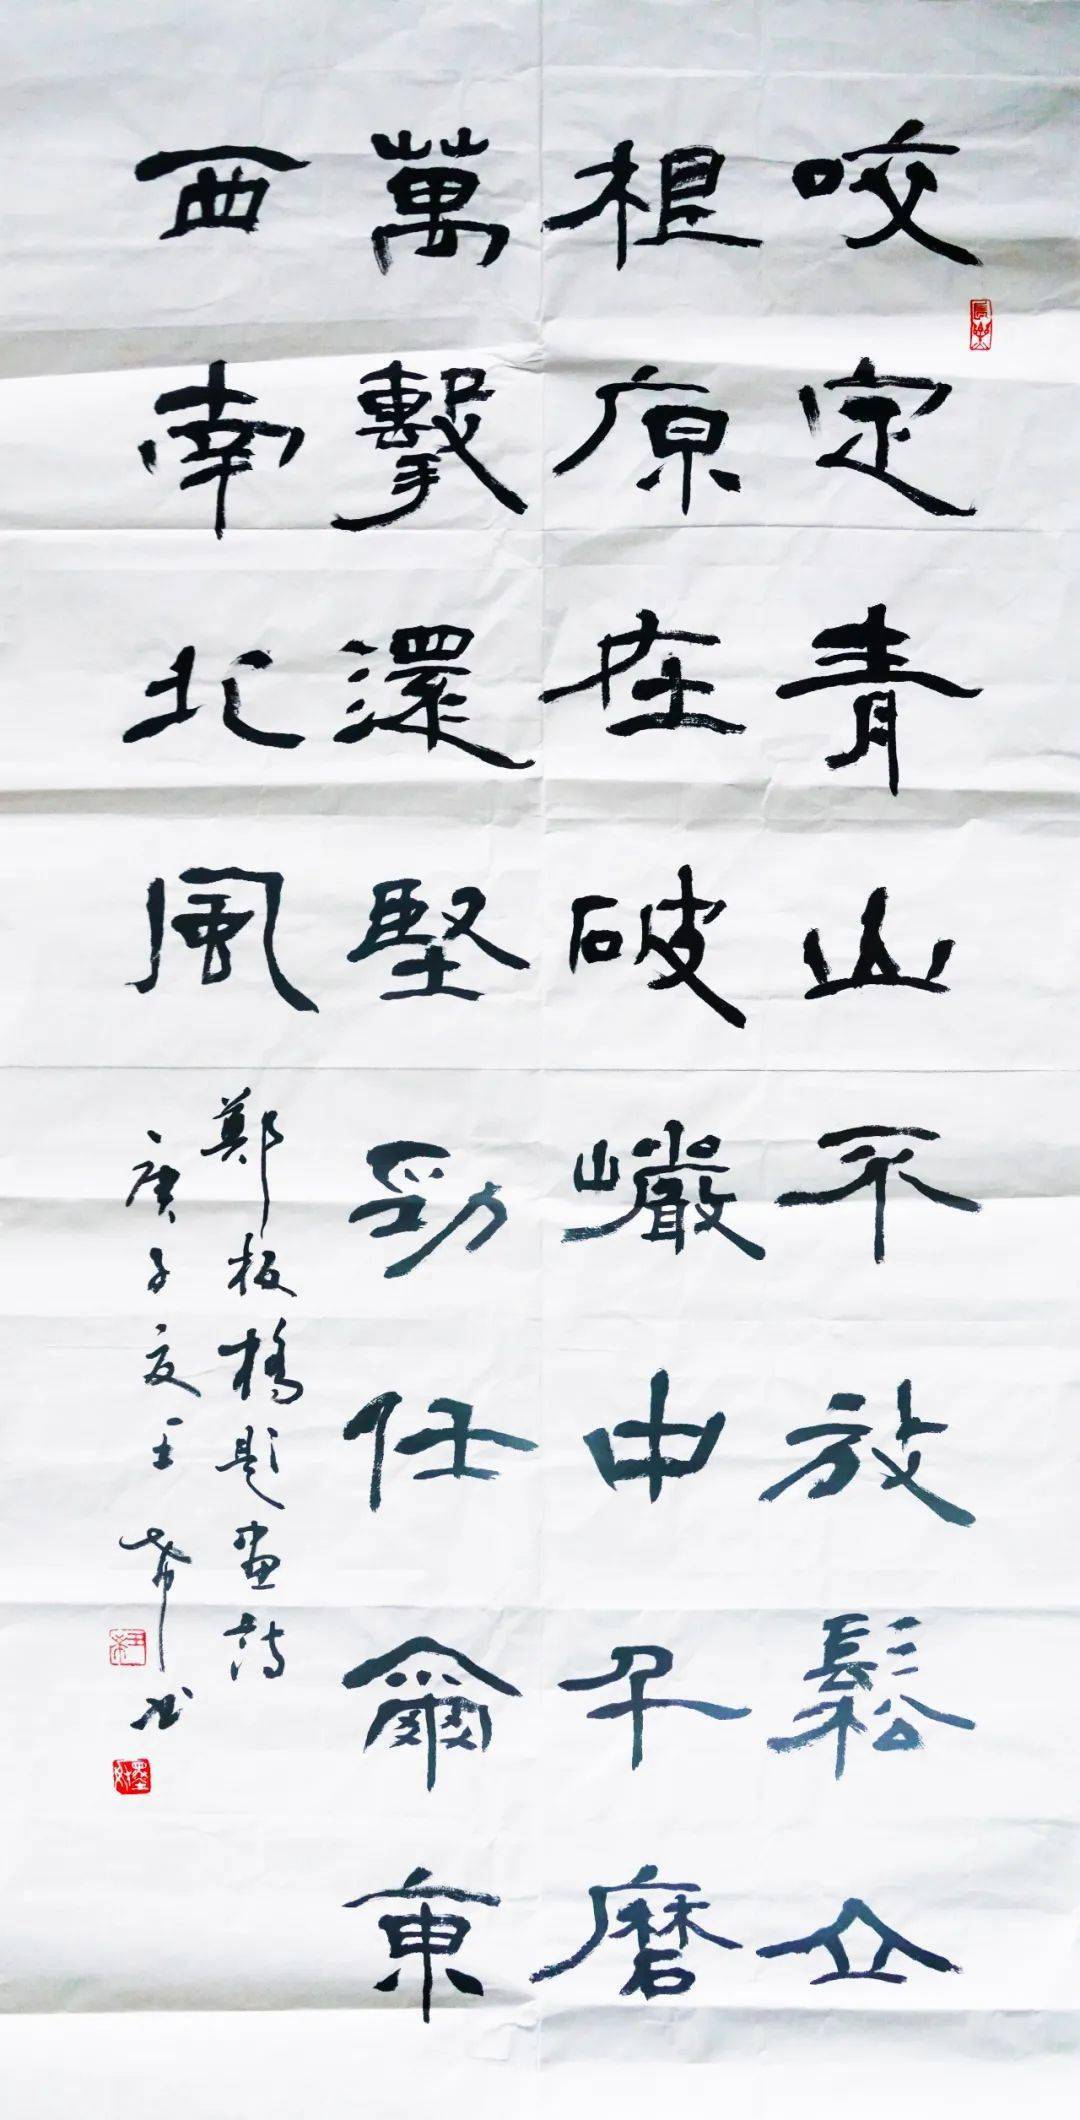 咬定青山不放鬆立
根原在破巖中千磨
萬擊還堅勁任爾東
西南北風
鄭板橋題畫詩
庚子夏王希书
長樂